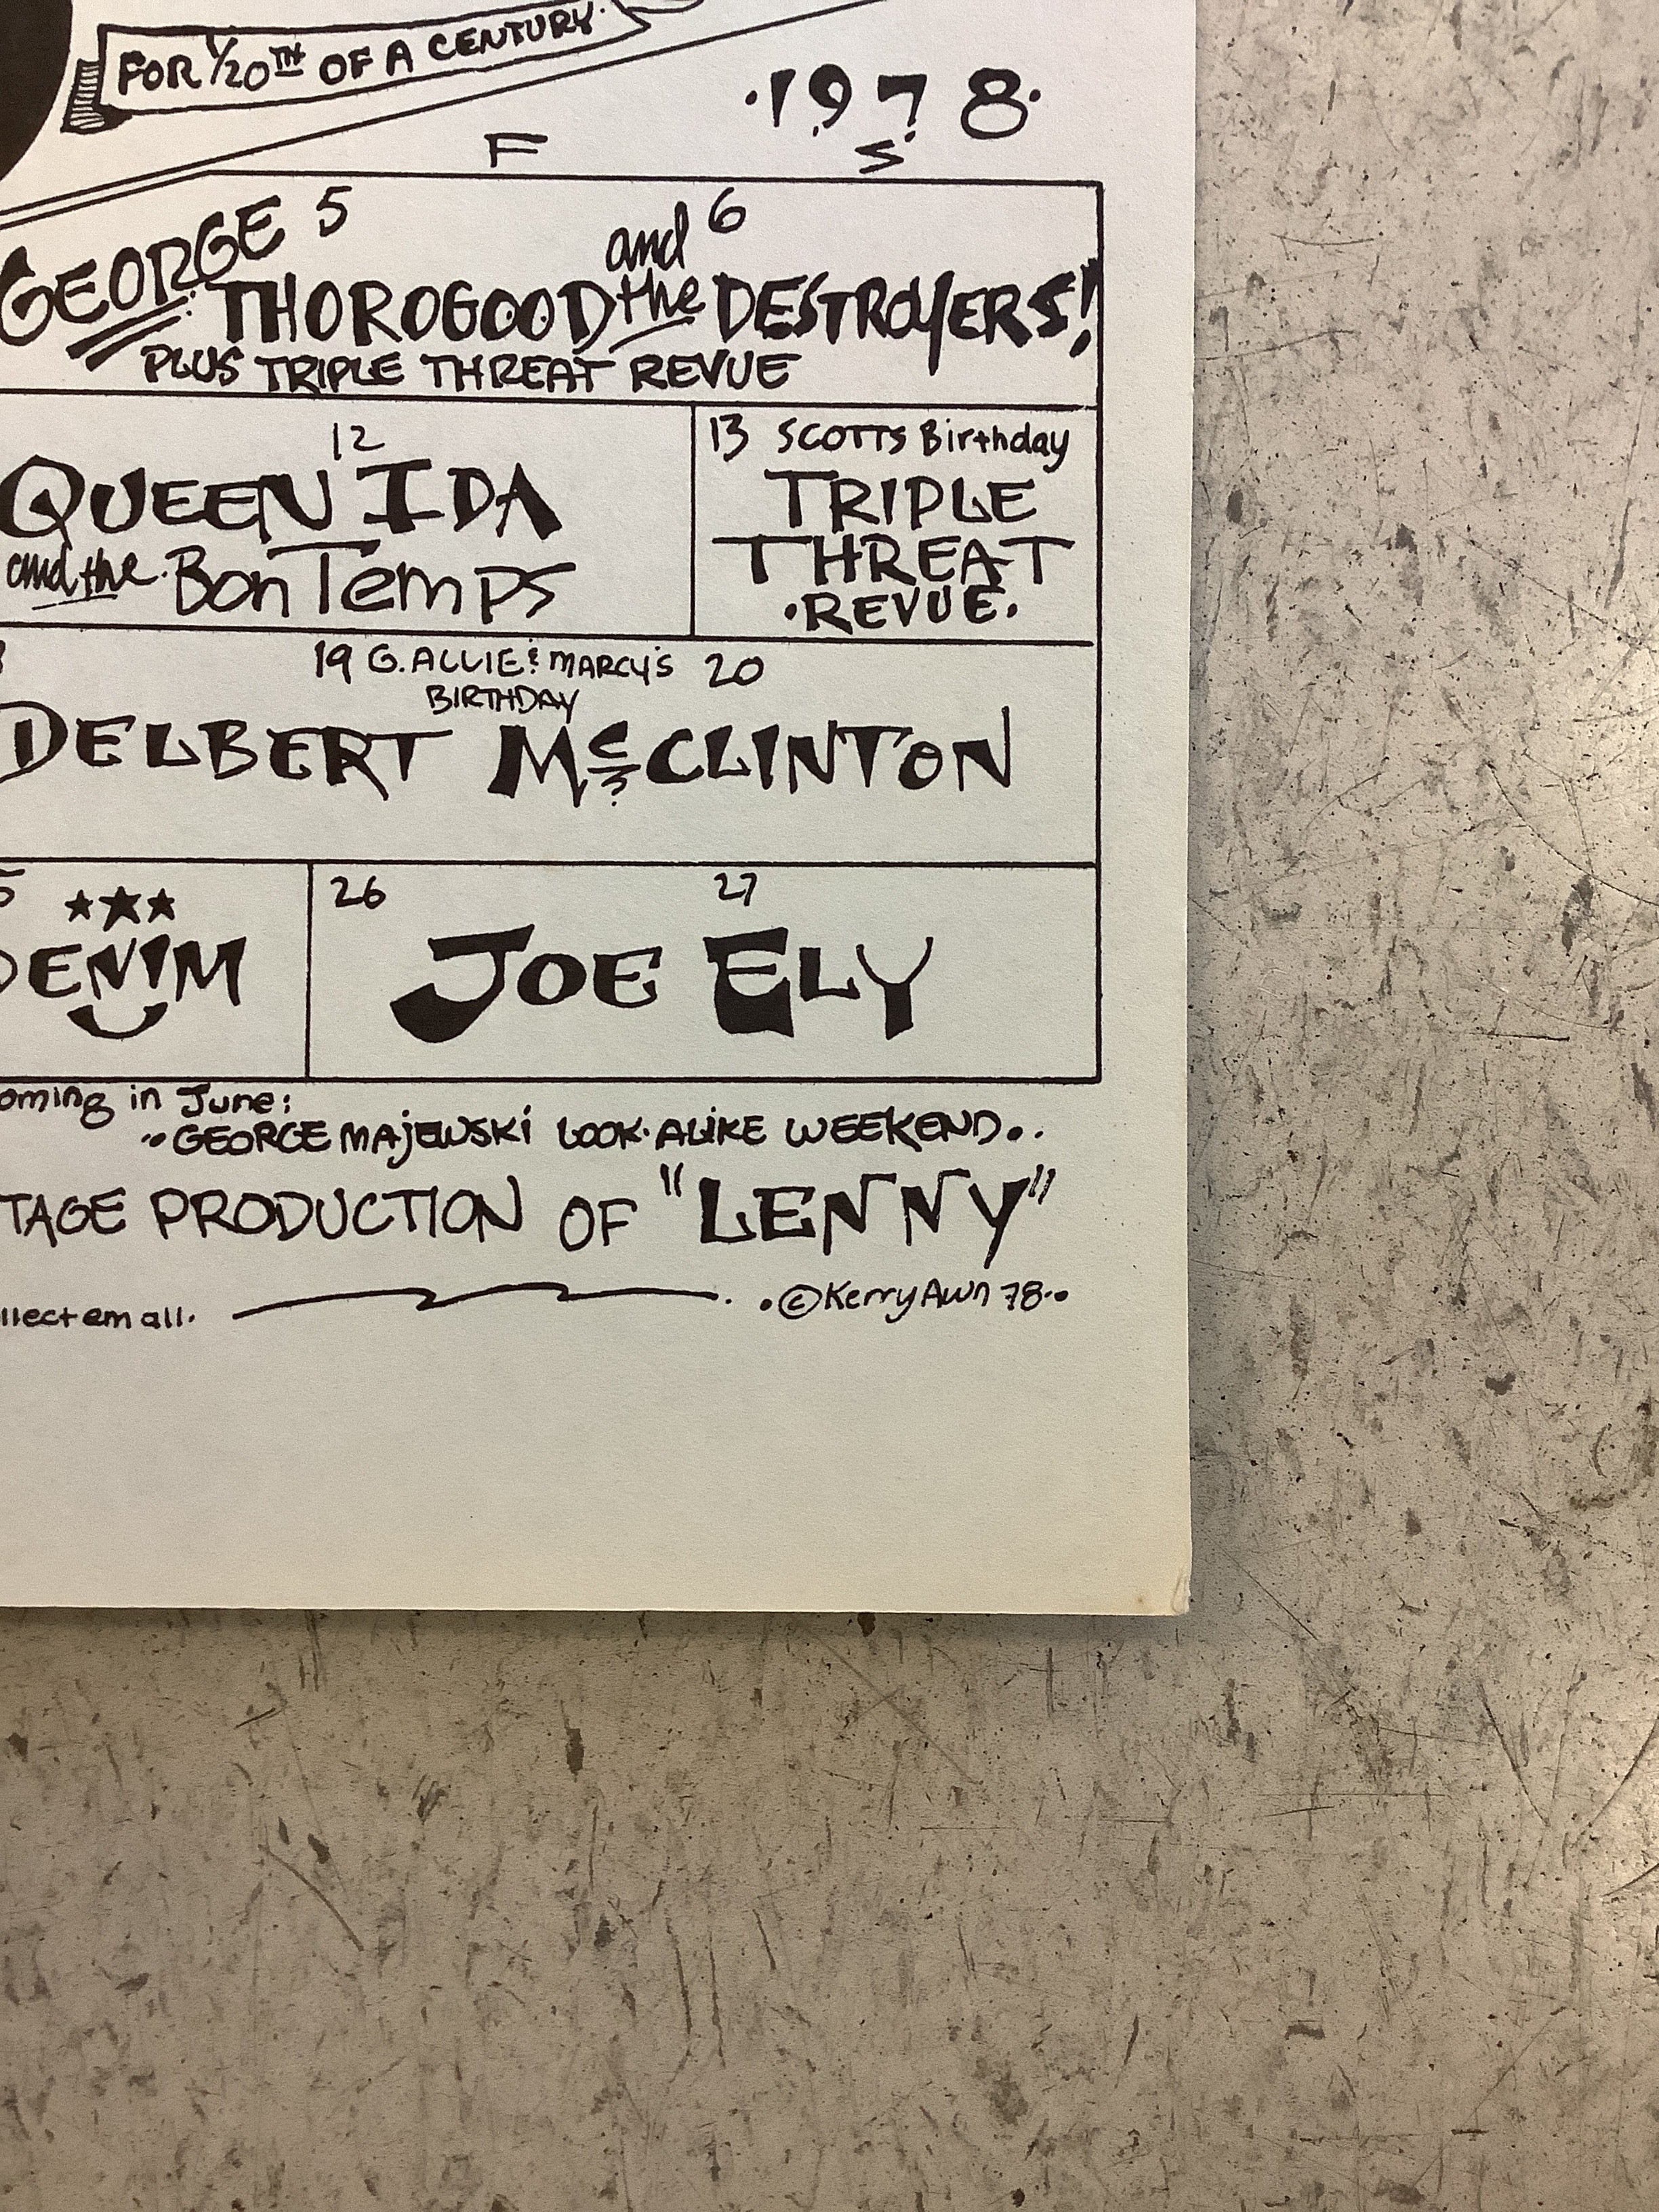 FOR 1/20TH OF A CENTURY.
·1978·
F S
5 6
GEORGE THOROGOOD and the DESTROYERS!
PLUS TRIPLE THREAT REVUE
12
QUEEN IDA
and the Bon Temps
13 SCOTTS Birthday
TRIPLE
THREAT
·REVUE·
19 G. ALLIE & MARCY'S 20
BIRTHDAY
DELBERT McCLINTON
★★★
DENIM
26 27
JOE ELY
oming in June:
GEORGE MAJEWSKI LOOK·ALIKE WEEKEND..
TAGE PRODUCTION OF "LENNY"
llect em all.
·©Kerry Awn 78··